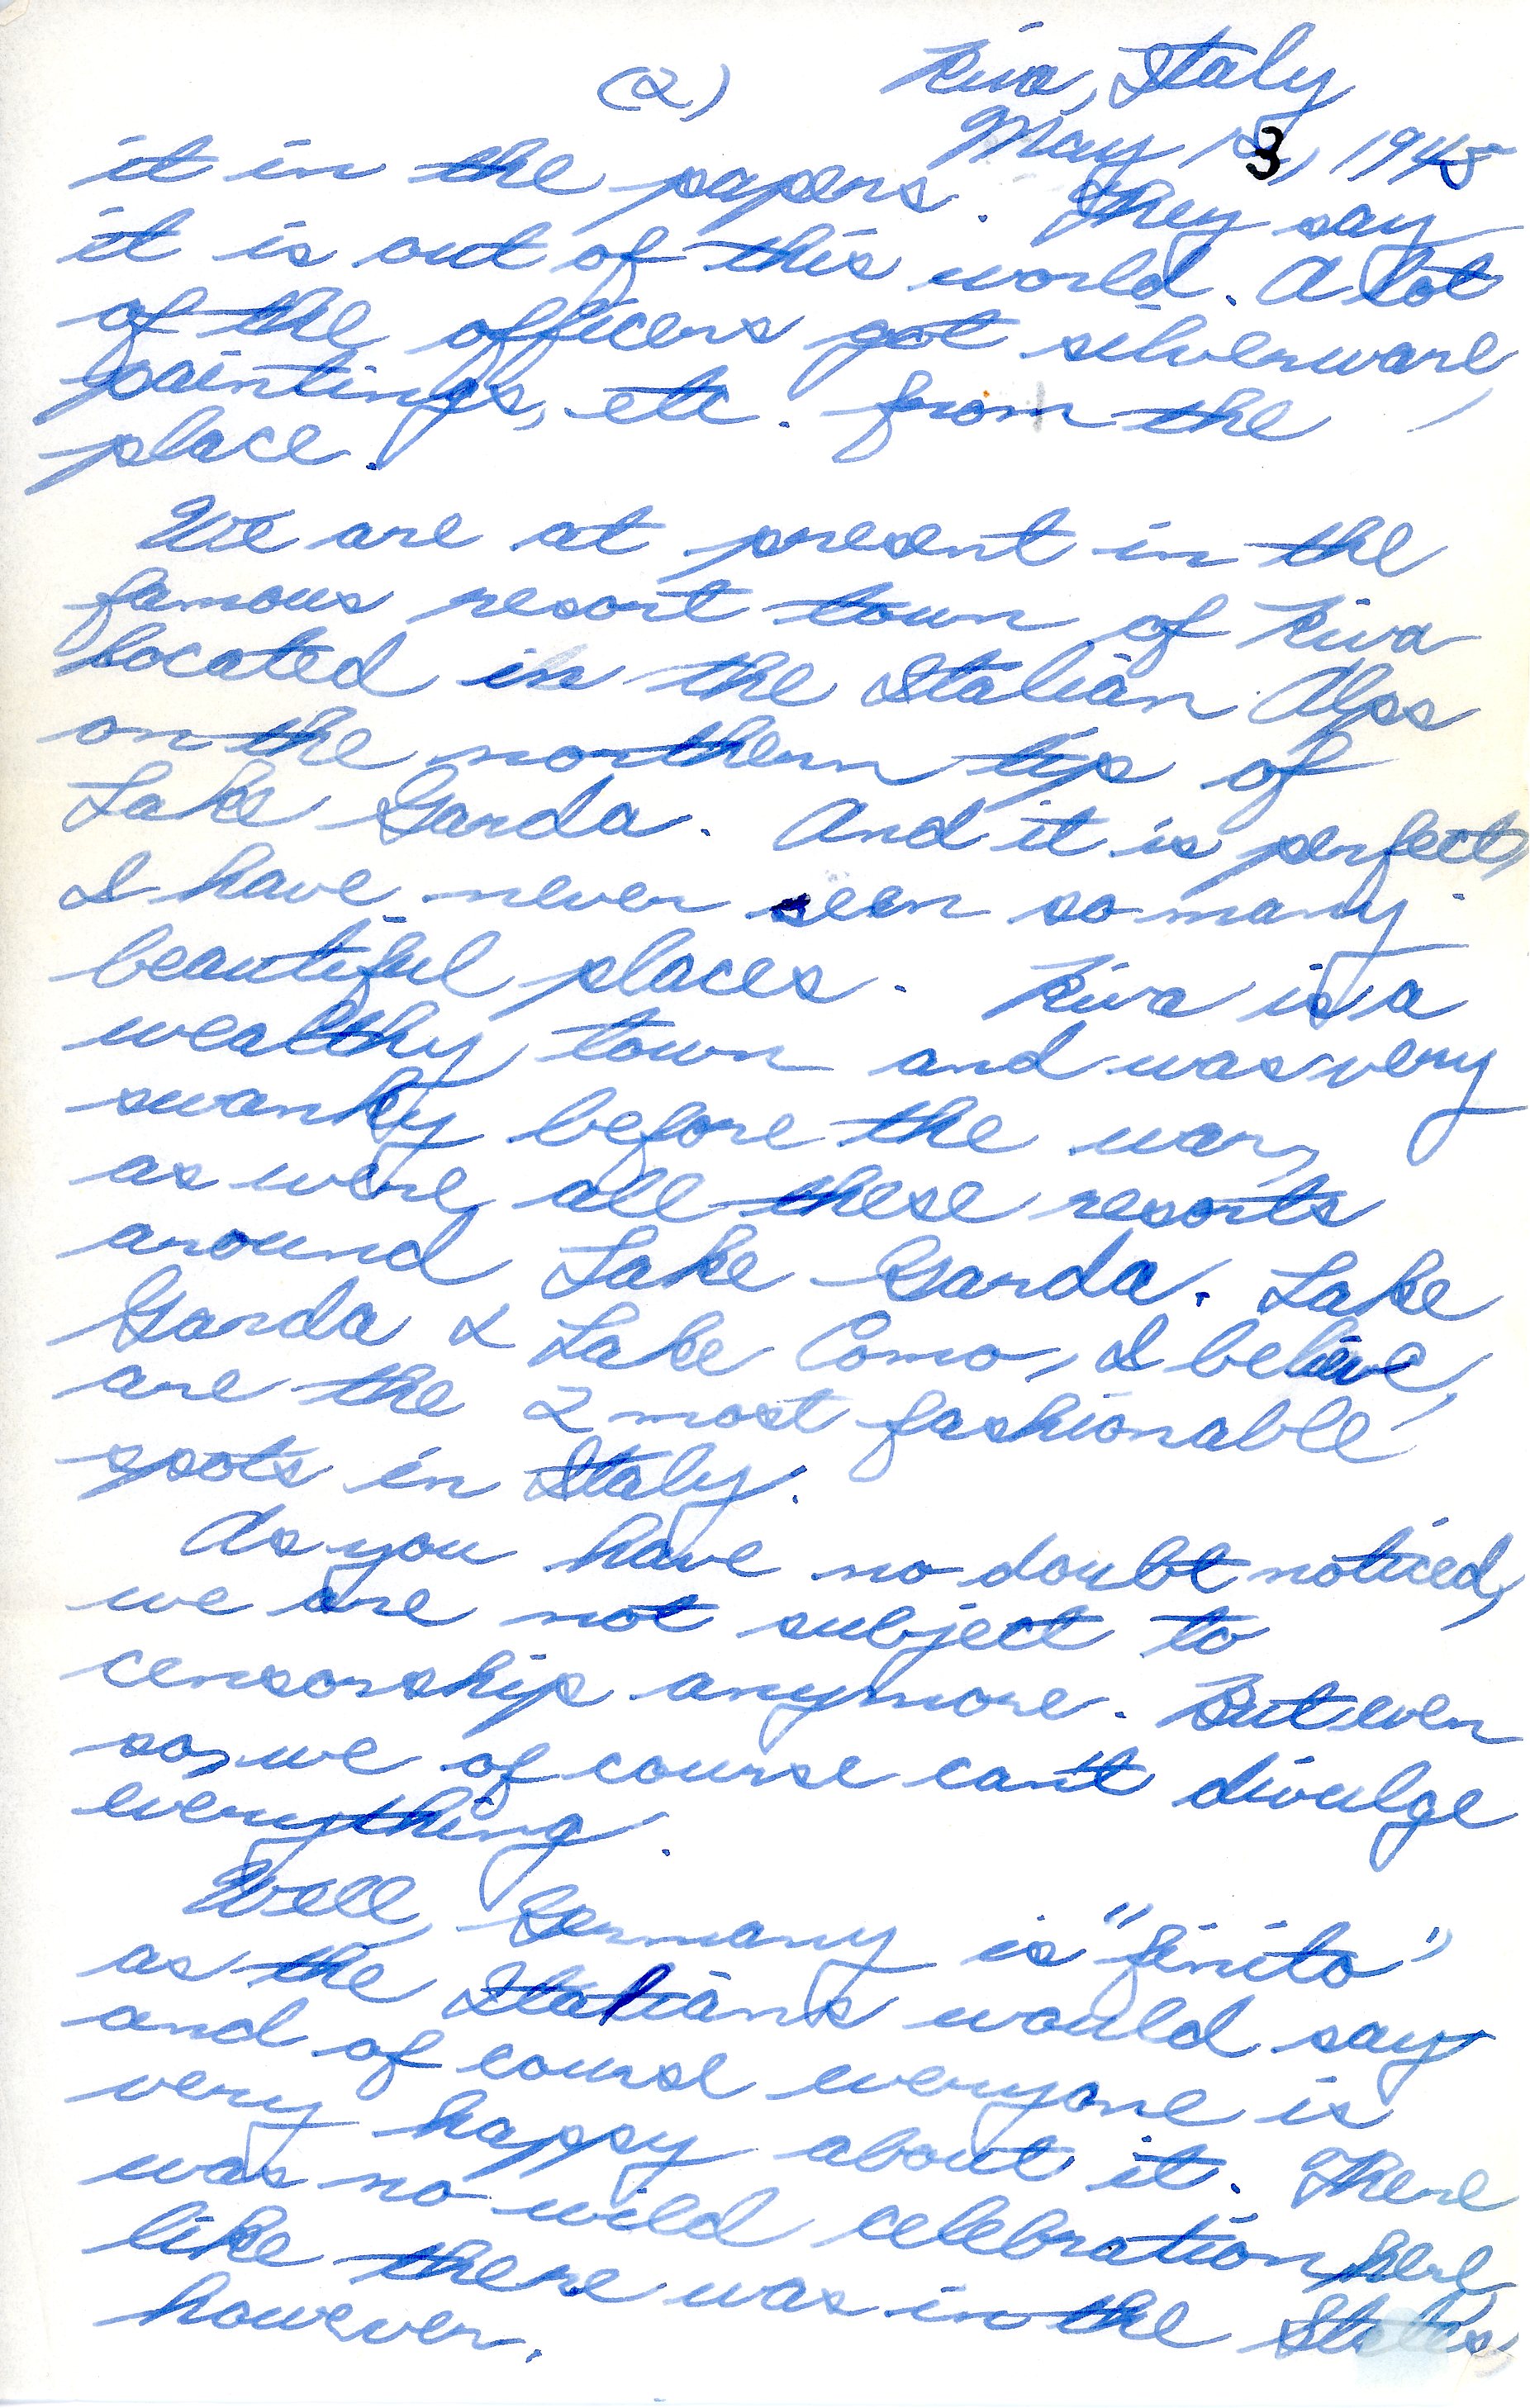 (2) Riva, Italy
May 13, 1945
it in the papers. They say
it is out of this world. A lot
of the officers got silverware,
paintings, etc. from the
place.
We are at present in the
famous resort town of Riva
located in the Italian Alps
on the northern tip of
Lake Garda. And it is perfect,
I have never seen so many
beautiful places. Riva is a
wealthy town and was very
swanky before the war,
as were all these resorts
around Lake Garda. Lake
Garda & Lake Como, I believe,
are the 2 most fashionable
spots in Italy.
As you have no doubt noticed,
we are not subject to
censorship anymore. But even
so, we of course can't divulge
everything.
Well, Germany is "finito"
as the Italians would say
and of course everyone is
very happy about it. There
was no wild celebration here
like there was in the States,
however.